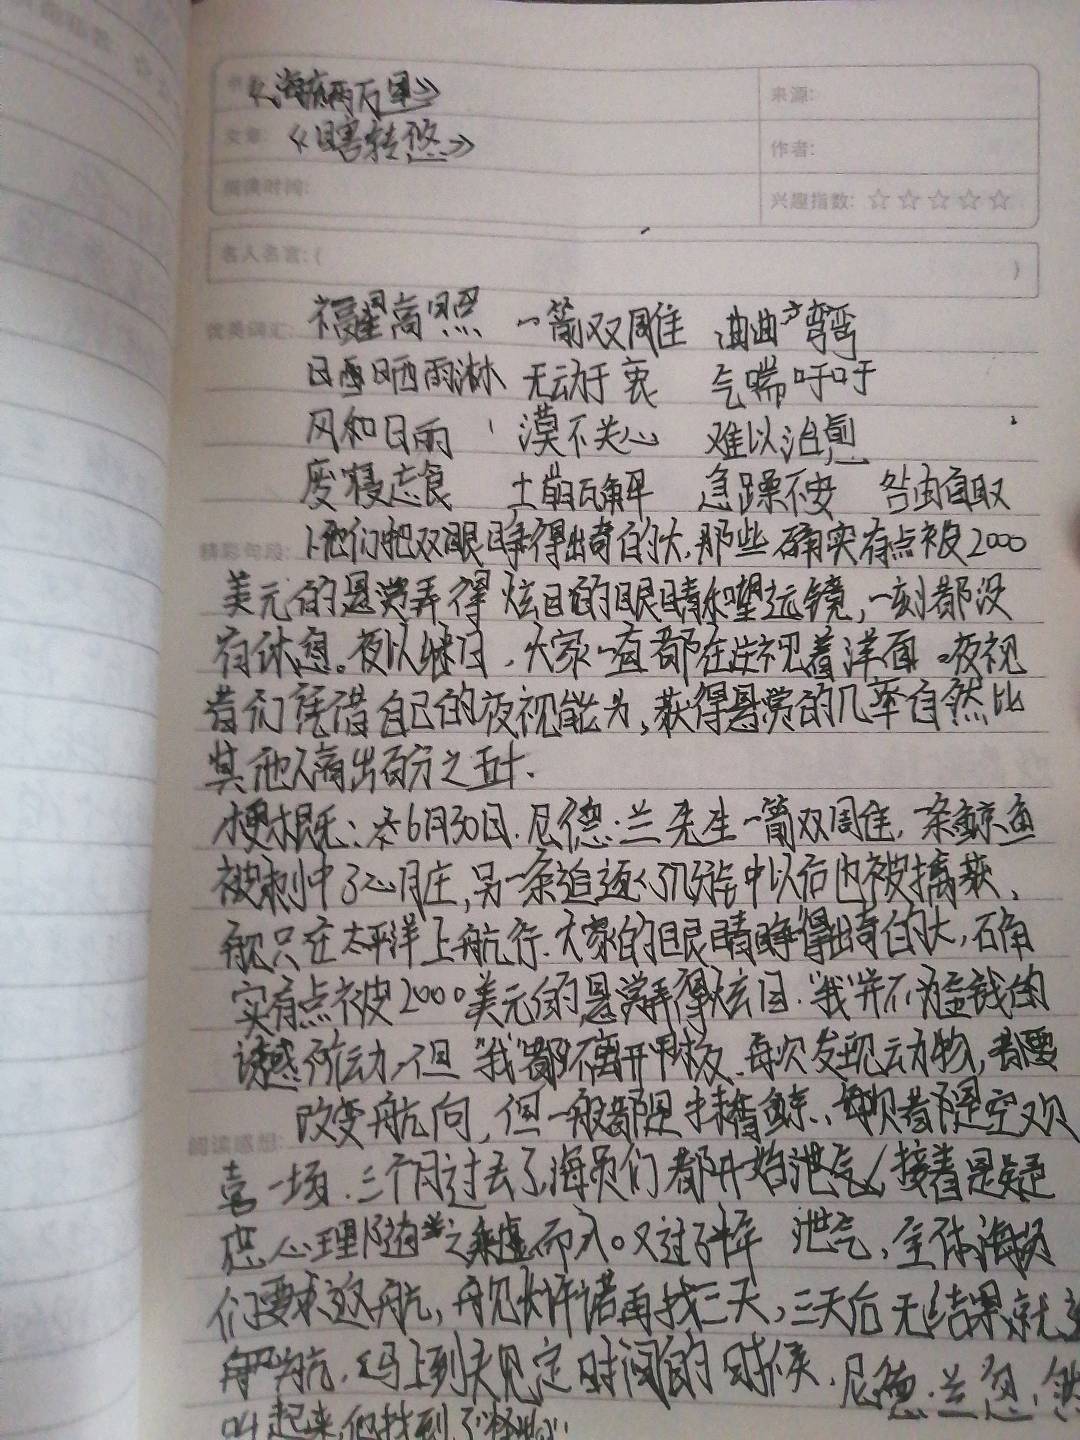 《海底两万里》
来源:
文章: 《瞎转悠》
作者:
阅读时间:
兴趣指数: ☆☆☆☆☆
名人名言:( )
优美词汇: 福星高照 一箭双雕 曲曲弯弯
日晒雨淋 无动于衷 气喘吁吁
风和日丽 漠不关心 难以治愈
废寝忘食 土崩瓦解 急躁不安 咎由自取
精彩句段: 1、他们把双眼睁得出奇的大,那些确实有点被2000
美元的悬赏弄得炫目的眼睛和望远镜,一刻都没
有休息。夜以继日,大家一直都在注视着洋面。夜视
者们凭借自己的夜视能力,获得悬赏的几率自然比
其他人高出百分之五十.
梗概: 6月30日.尼德·兰先生一箭双雕,一条鲸鱼
被刺中了心脏,另一条追逐了几分钟以后也被擒获,
舰只在太平洋上航行.大家的眼睛睁得出奇的大,确
实有点被2000美元的悬赏弄得炫目.“我”并不为金钱的
诱惑所动,但“我”都不离开甲板.每次发现动物,都要
改变航向,但一般都是抹香鲸、每次都是空欢
阅读感想:
喜一场.三个月过去了,海员们都开始泄气,接着是疑
惑心理随之乘虚而入。又过了半年 泄气,全体海员
们要求返航,舰长许诺再找三天,三天后无结果,就
返航.马上到了规定时间的时候,尼德·兰忽然
叫起来,他找到了“怪物”